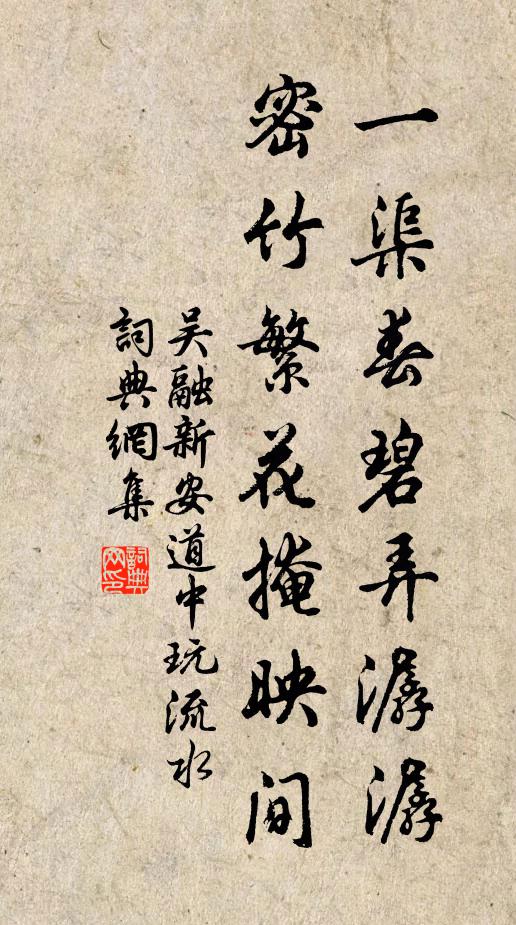 一渠春碧弄潺潺
密竹繁花掩映间
吴融新安道中玩流水
詞典網集
詞典网印